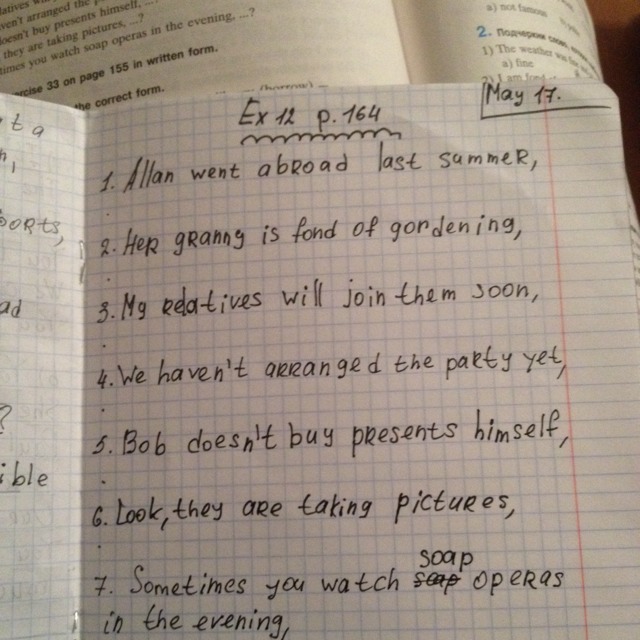 ven't arranged the p
doesn't buy presents himself, ...?
they are taking pictures, ...?
times you watch soap operas in the evening, ...?
ercise 33 on page 155 in written form.
the correct form.
(borrow)
a) not famous
2. Подчеркни
1) The weather was
a) fine
2) I am fond
May 17.
Ex 12 p. 164
1. Allan went abroad last summer,
2. Her granny is fond of gordening,
3. My relatives will join them soon,
4. We haven't arranged the party yet,
5. Bob doesn't buy presents himself,
6. Look, they are taking pictures,
soap
7. Sometimes you watch soap operas
in the evening,
ports,
ad
?
ible